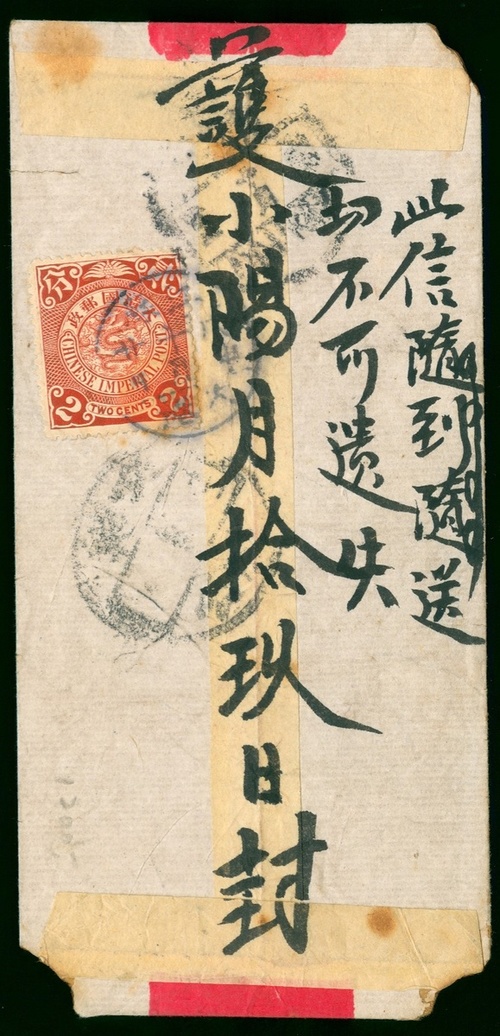 此信隨到隨送
切不可遺失
護
小陽月拾玖日封
大清國郵政
貳分
CHINESE IMPERIAL POST
2 TWO CENTS 2